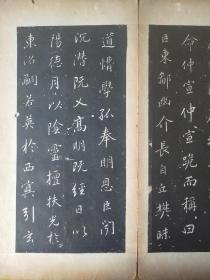 命仲宣仲宣跪而稱曰
臣東鄙幽介長自丘樊昧
道懵學孤奉明恩臣聞
沉潛既乂高明既經日以
陽德月以陰靈擅扶光於
東沼嗣若英於西冥引玄